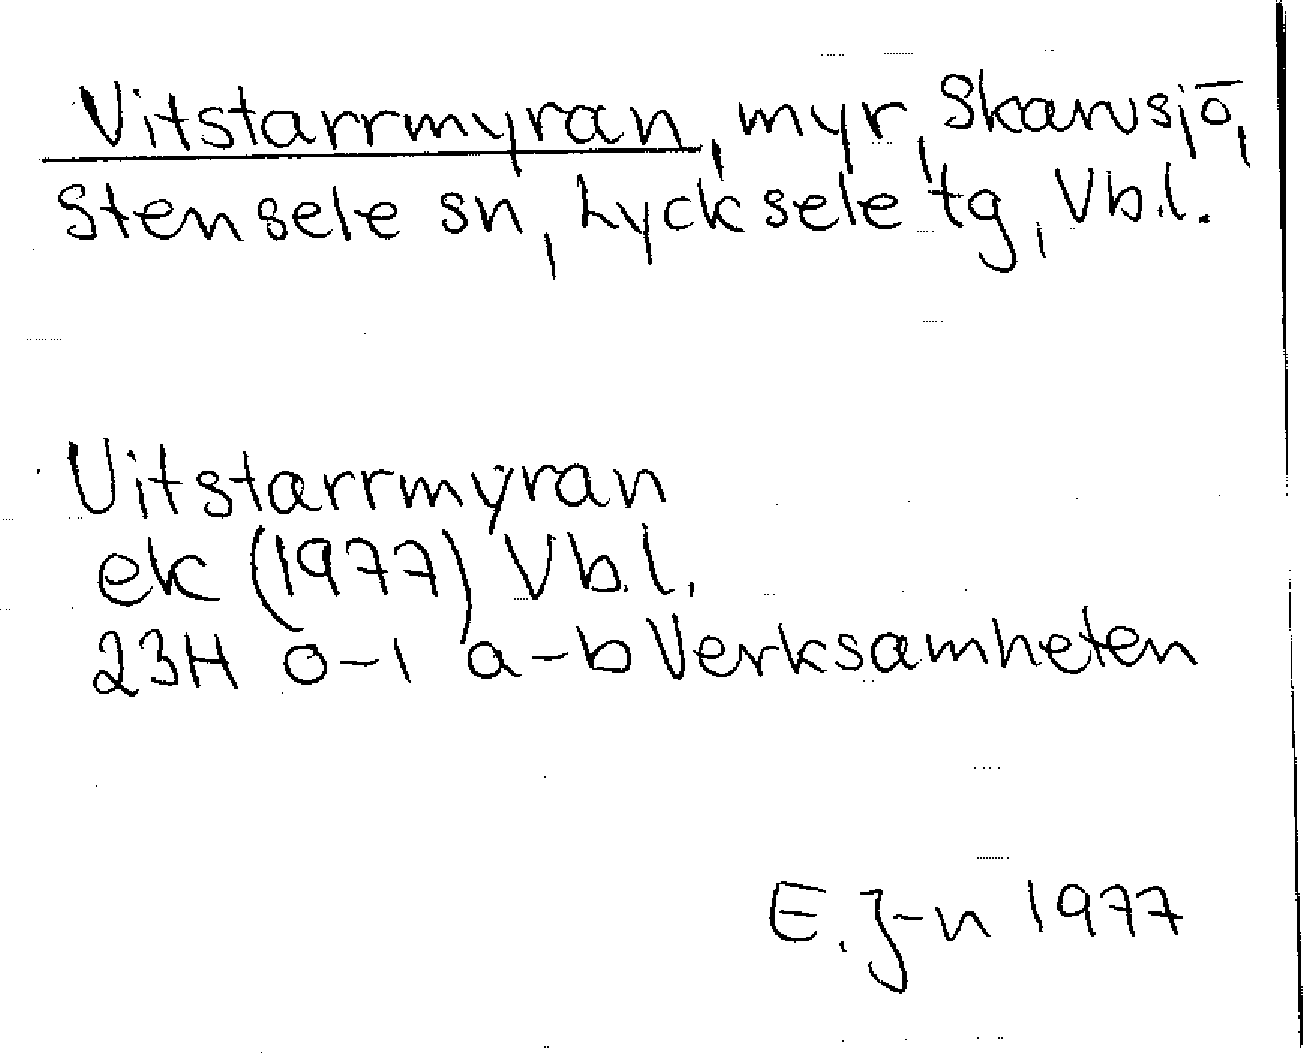 Vitstarrmyran, myr, Skarvsjö,
Stensele sn, Lycksele tg, Vb.l.
Vitstarrmyran
ek (1977) Vb.l.
23H 0-1 a-b Verksamheten
E. J-n 1977